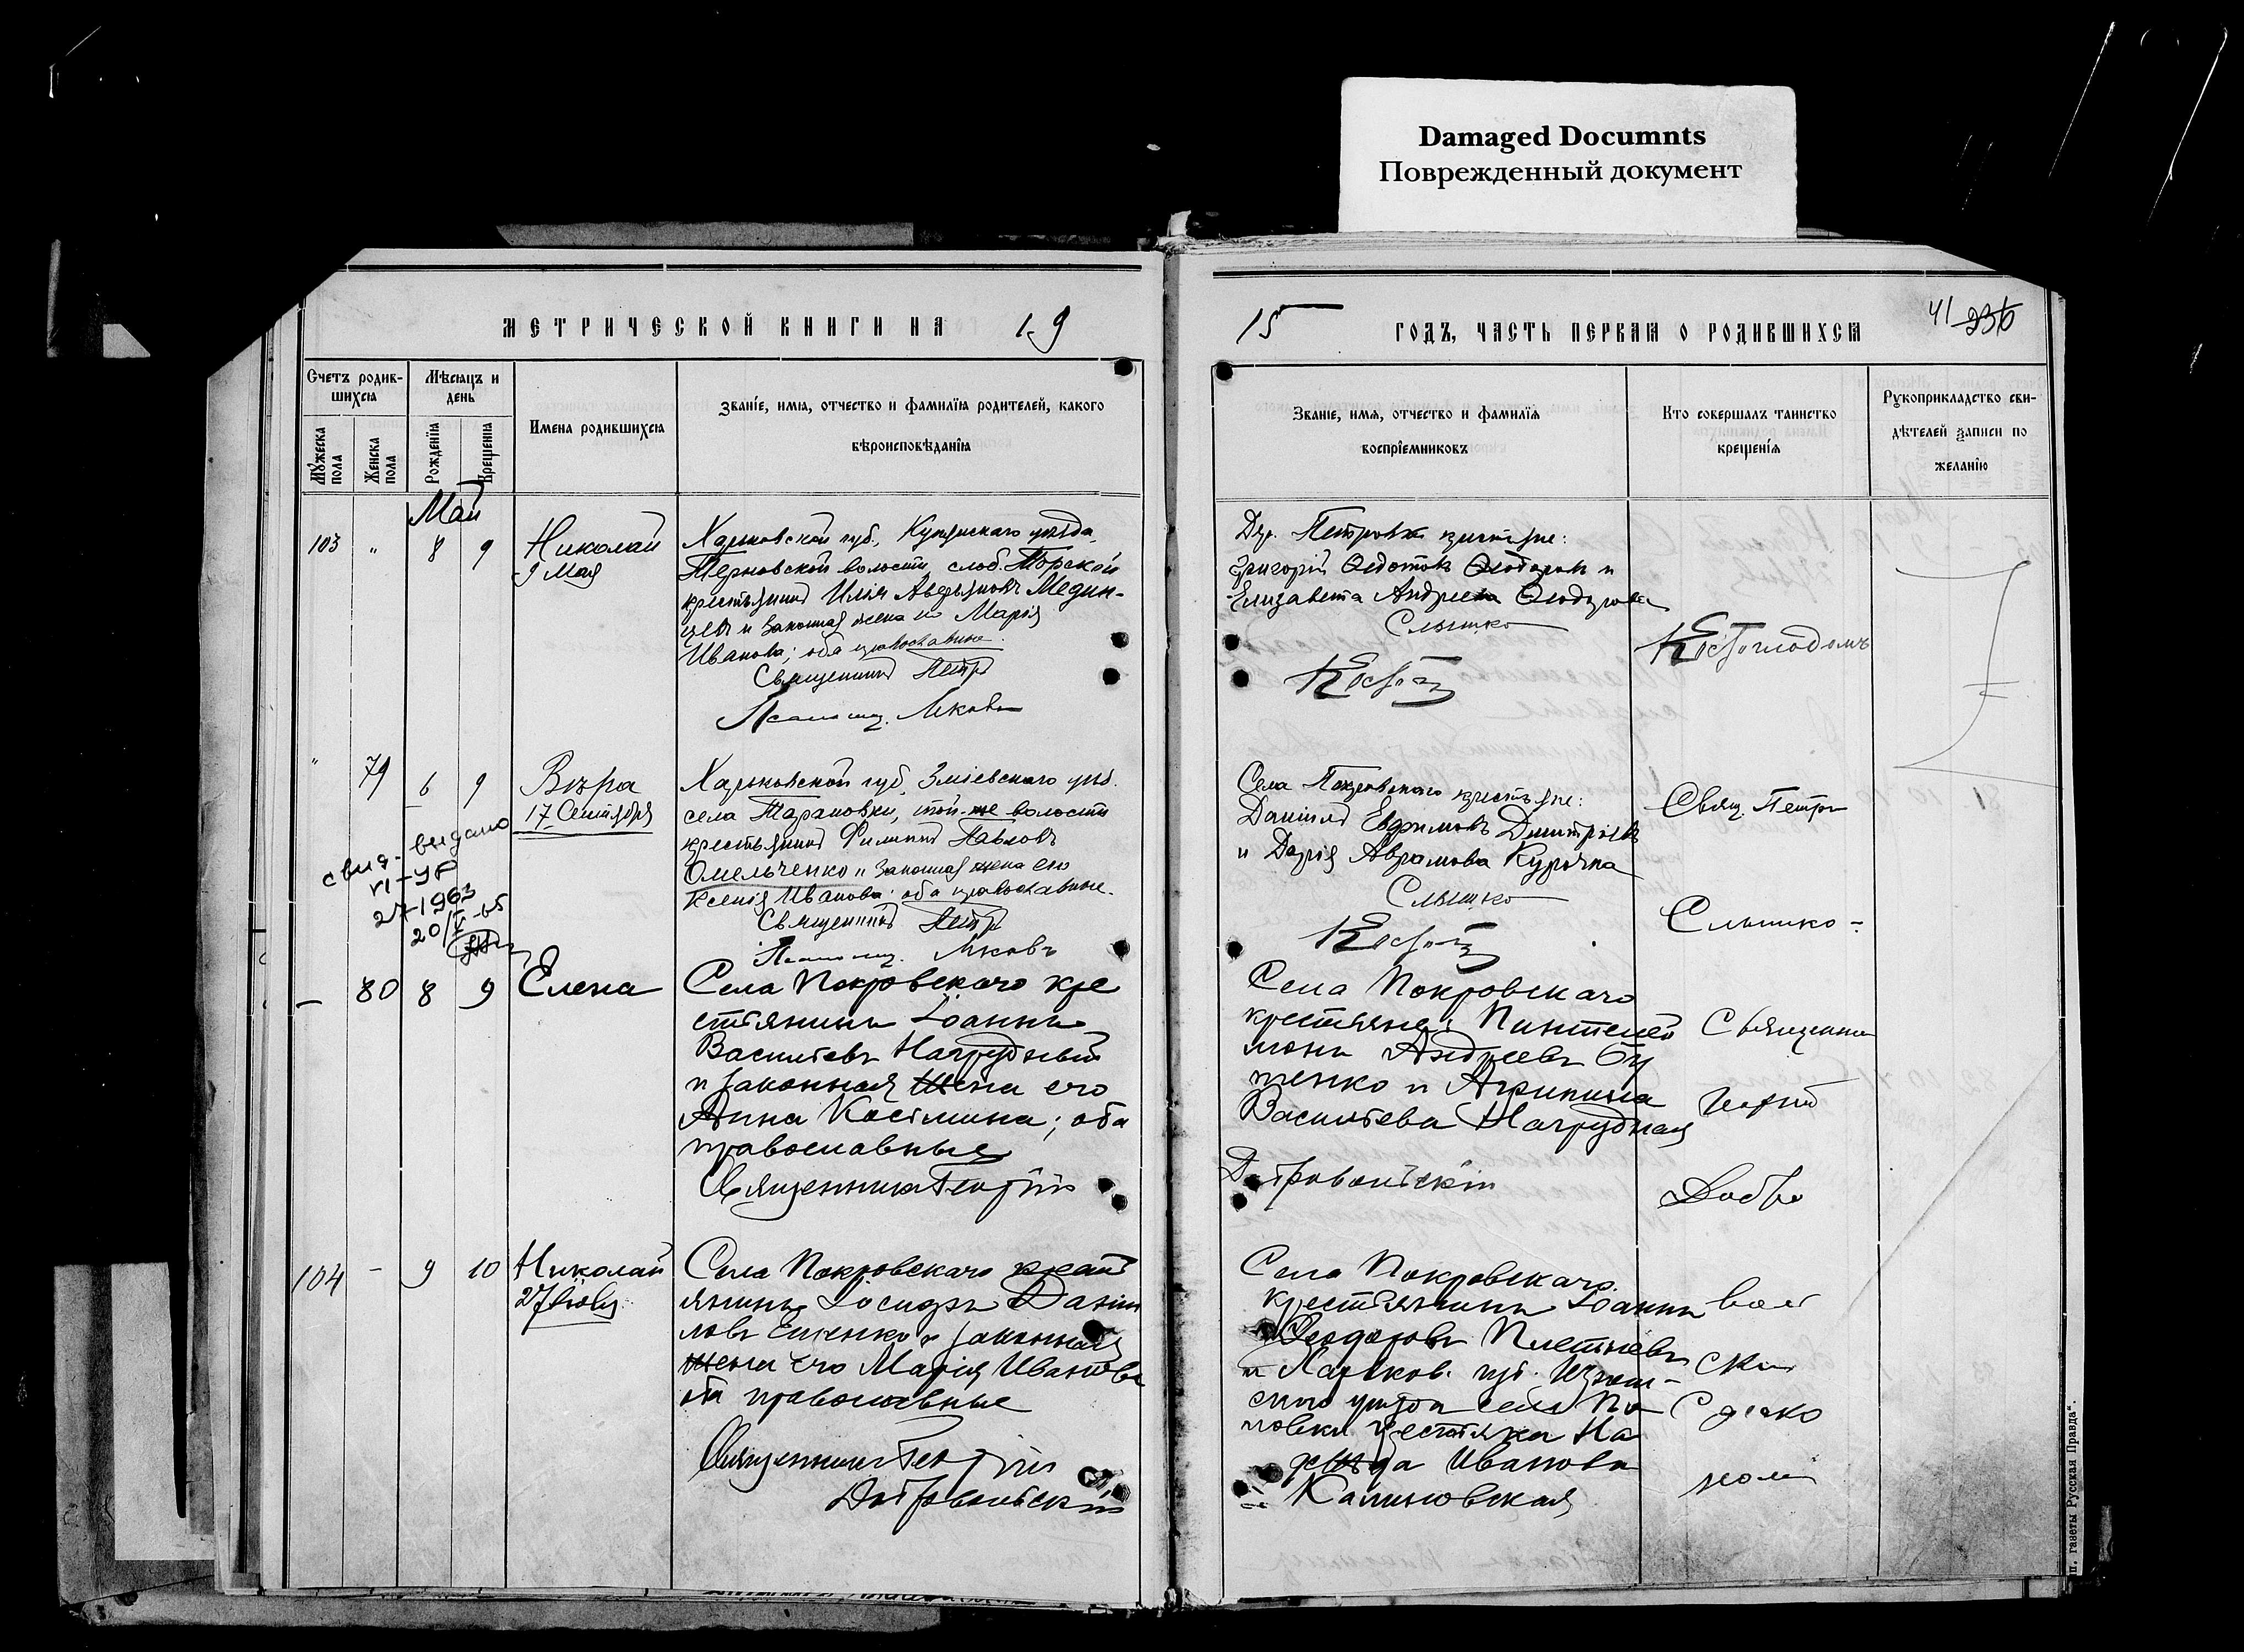 Damaged Documnts
Поврежденный документ
МЕТРИЧЕСКОЙ КНИГИ НА 19
15 ГОДЪ, ЧАСТЬ ПЕРВАЯ О РОДИВШИХСЯ
41 236
Счетъ родив-
шихся
Мѣсяцъ и
день
Мужеска
пола
Женска
пола
Рожденія
Крещенія
Имена родившихся
Званіе, имя, отчество и фамилія родителей, какого
вѣроисповѣданія
Званіе, имя, отчество и фамилія
воспріемниковъ
Кто совершалъ таинство
крещенія
Рукоприкладство сви-
дѣтелей записи по
желанію
Май
103 " 8 9
Николай
9 Мая
Харьковской губ., Купянскаго уѣзда,
Терновской волости, слоб. Торской
крестьянинъ Илія Аверьяновъ Медин-
цевъ и законная жена его Марія
Иванова; оба православные.
Священникъ Петръ
Псаломщ. Яковъ
Дер. Петровки крестьяне:
Григорій Ѳедотовъ и
Елизавета Андреева
Слышко
" 79 6 9
Вѣра
17 Сентября
Харьковской губ. Зміевского уѣз.
села Тарановки, той-же волости
крестьянинъ Филиппъ Павловъ
Омельченко и законная жена его
Ксенія Иванова; оба православные.
Священникъ Петръ
Псаломщ. Яковъ
Села Покровскаго крестьяне:
Даніилъ Евфимовъ Димитріевъ
и Дарія Аврамова Курочка
Слышко
Свящ. Петръ
Слышко-
свид- выдано
VI-УР
27-1963
20/V-65
– 80 8 9
Елена
Села Покровскаго кре
стьянинъ Іоаннъ
Васильевъ Нагрудный
и законная жена его
Анна Косьмина; оба
православные
Священникъ Георгій
Села Покровскаго
крестьяне: Пантелей
монъ Андреевъ Бу
тенко и Агрипина
Васильева Нагрудная
Добровольскій
Священни
Георгій
Добро
104 - 9 10
Николай
27 Іюля
Села Покровскаго крест
янинъ Іосифъ Данiи
ловъ и законная
жена его Марія Иванова
оба православные
Священникъ Георгій
Добровольскій
Села Покровскаго
крестьянинъ Іоаннъ
Ѳеодоровъ Плетневъ
и Харьков. губ. Изюм-
скаго уѣзда села По
повки крестьянка На
дежда Иванова
Калиновская
вол
ский
С діако
номъ
п. газеты Русская Правда".